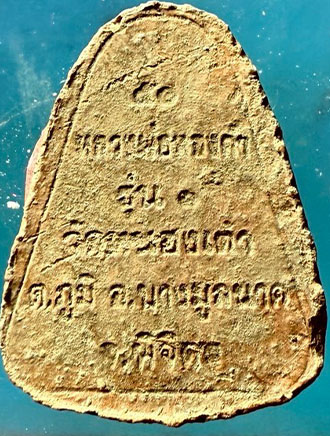 ๕๐
หลวงพ่อทองดำ
รุ่น ๑
วัดหนองเต่า
ต.ภูมิ อ.บางมูลนาค
จ.พิจิตร